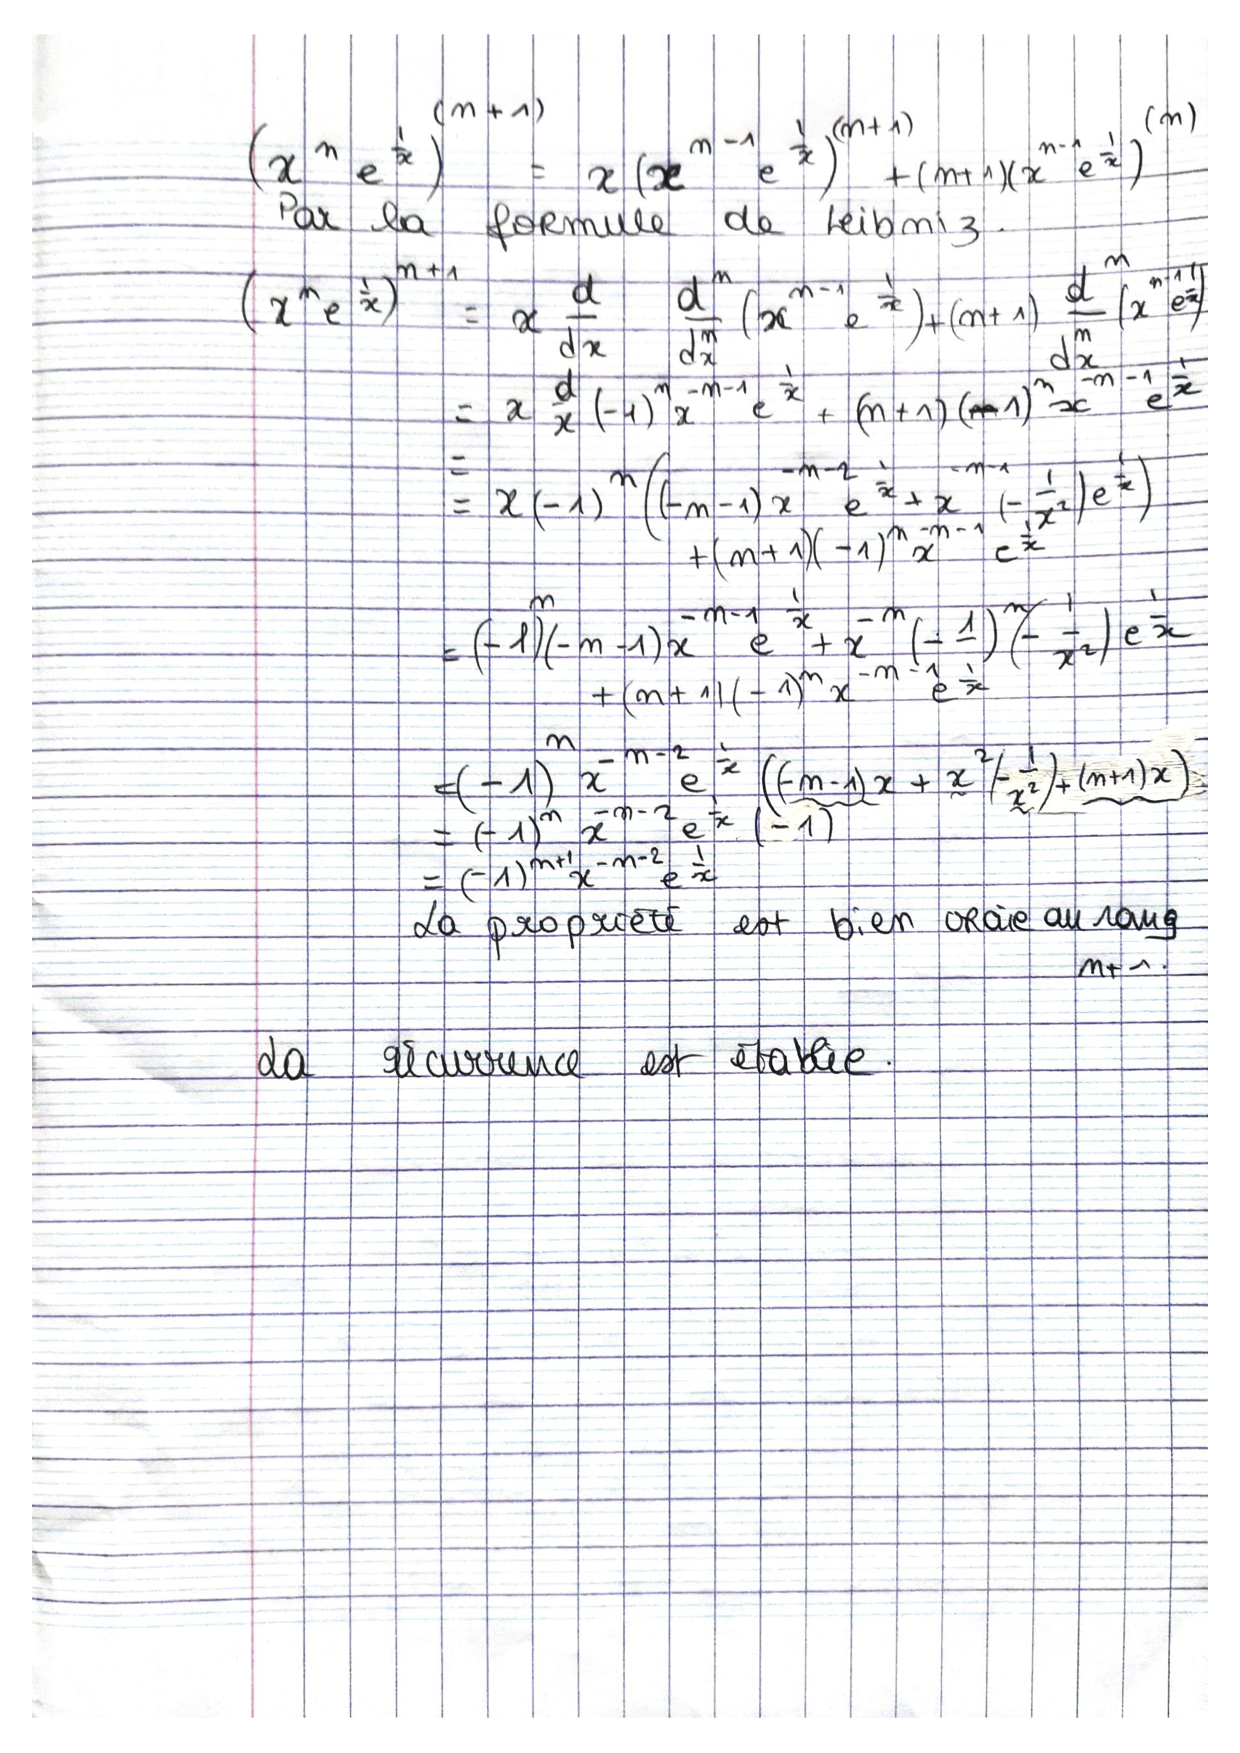 (x^n e^{1/x})^{(n+1)} = x (x^{n-1} e^{1/x})^{(n+1)} + (n+1)(x^{n-1} e^{1/x})^{(n)}
Par la formule de Leibniz.
(x^n e^{1/x})^{n+1} = x d/dx d^n/dx^n (x^{n-1} e^{1/x}) + (n+1) d^n/dx^n (x^{n-1} e^{1/x})
= x d/x (-1)^n x^{-n-1} e^{1/x} + (n+1) (-1)^n x^{-n-1} e^{1/x}
=
= x (-1)^n ((-n-1) x^{-n-2} e^{1/x} + x^{-n-1} (-1/x^2) e^{1/x})
+ (n+1)(-1)^n x^{-n-1} e^{1/x}
= (-1)^n (-n-1) x^{-n-1} e^{1/x} + x^{-n} (-1)^n (-1/x^2) e^{1/x}
+ (n+1)(-1)^n x^{-n-1} e^{1/x}
= (-1)^n x^{-n-2} e^{1/x} ((-n-1) x + x^2 (-1/x^2) + (n+1) x)
= (-1)^n x^{-n-2} e^{1/x} (-1)
= (-1)^{n+1} x^{-n-2} e^{1/x}
La propriété est bien vraie au rang
n+1.
La récurrence est établie.